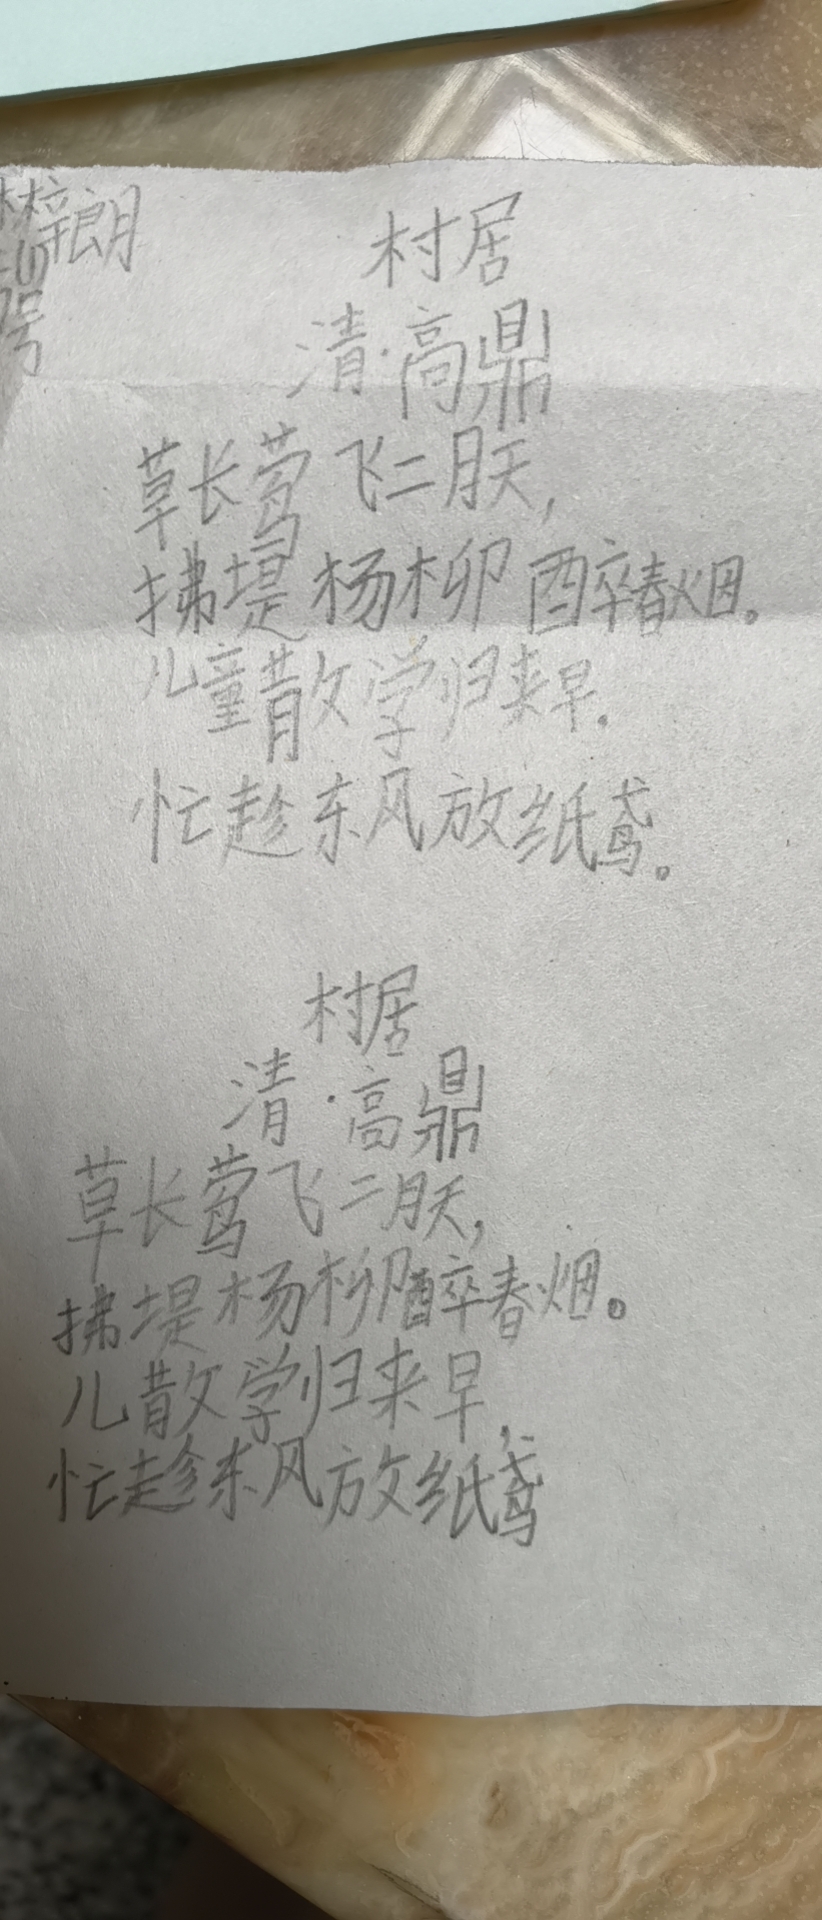 林梓朗
号
村居
清·高鼎
草长莺飞二月天,
拂堤杨柳醉春烟。
儿童散学归来早.
忙趁东风放纸鸢。
村居
清·高鼎
草长莺飞二月天,
拂堤杨柳醉春烟。
儿散学归来早,
忙趁东风放纸鸢